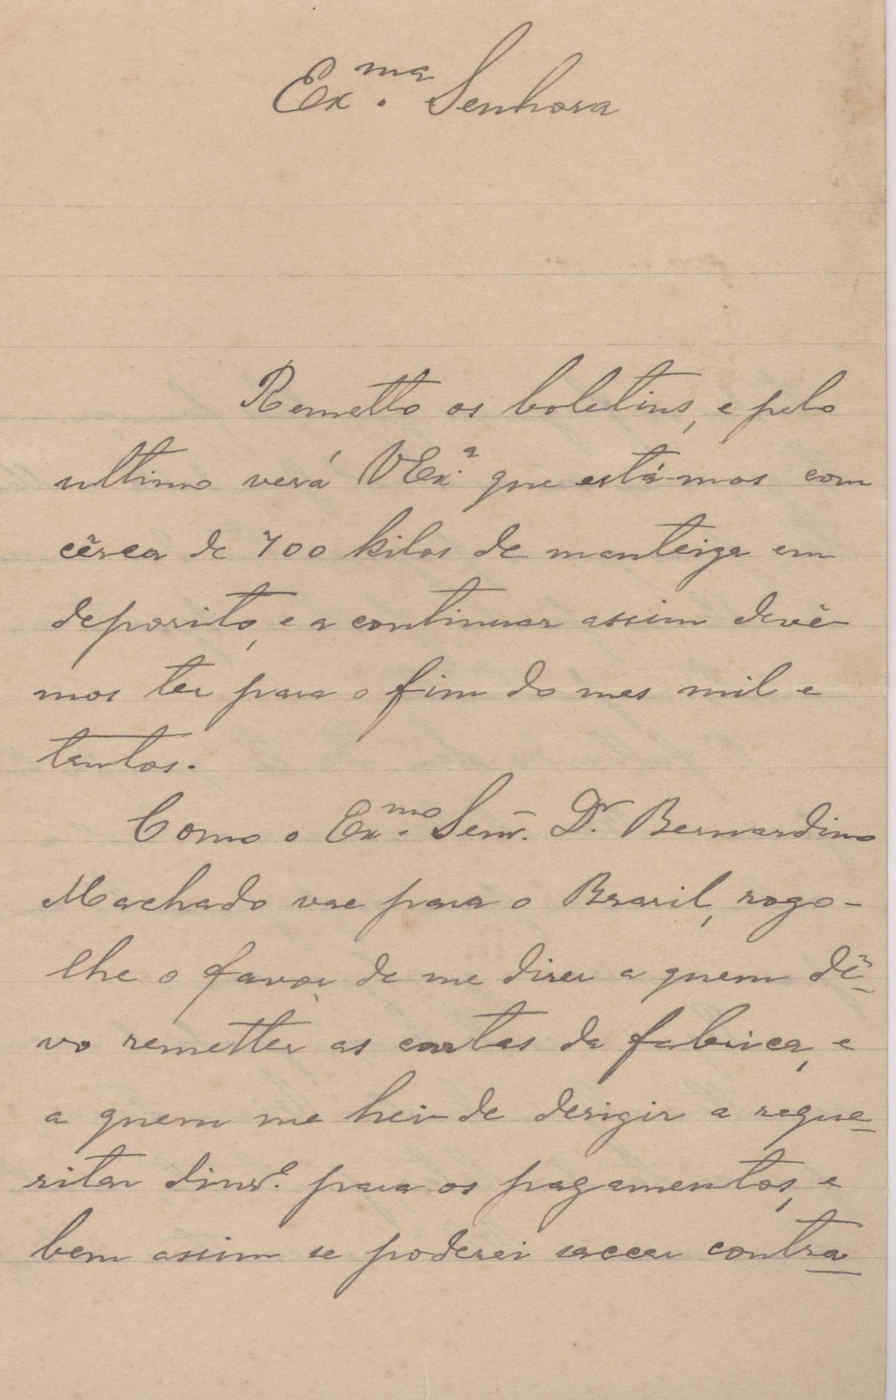 Ex.ma Senhora
Remetto os boletins, e pelo
ultimo verá VEx.a que está-mos com
cêrca de 700 kilos de manteiga em
deposito, e a continuar assim devê-
mos ter para o fim do mes mil e
tantos.
Como o Ex.mo Senr. Dr. Bernardino
Machado vae para o Brasil, rogo-
lhe o favor de me diser a quem dê-
vo remetter as cartas da fabrica, e
a quem me hei-de derigir a reque-
sitar dinr.o para os pagamentos, e
bem assim se poderei saccar contra